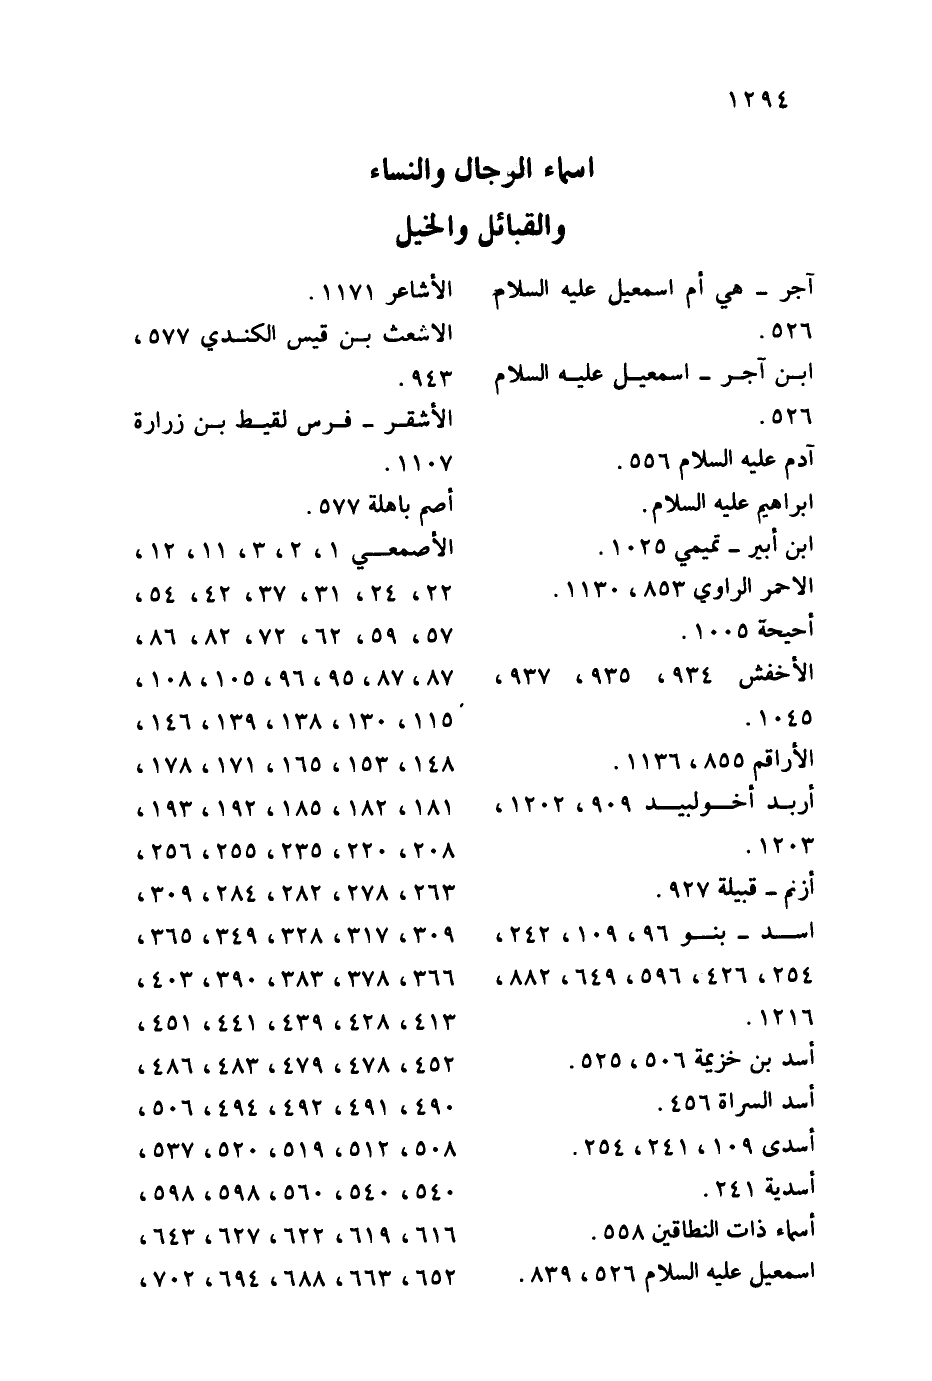 ١٢٩٤
اسماء الرجال والنساء
والقبائل والخيل
آجر - هي أم اسمعيل عليه السلام
٥٢٦.
ابن آجر - اسمعيل عليه السلام
٥٢٦.
آدم عليه السلام ٥٥٦.
ابراهيم عليه السلام.
ابن أبير - تميمي ١٠٢٥.
الاحمر الراوي ٨٥٣، ١١٣٠.
أحيحة ١٠٠٥.
الأخفش ٩٣٤، ٩٣٥، ٩٣٧،
١٠٤٥.
الأراقم ٨٥٥، ١١٣٦.
أربد أخولبيد ٩٠٩، ١٢٠٢،
١٢٠٣.
أزنم - قبيلة ٩٢٧.
اسد - بنو ٩٦، ١٠٩، ٢٤٢،
٢٥٤، ٤٢٦، ٥٩٦، ٦٤٩، ٨٨٢،
١٢١٦.
أسد بن خزيمة ٥٠٦، ٥٢٥.
أسد السراة ٤٥٦.
أسدى ١٠٩، ٢٤١، ٢٥٤.
أسدية ٢٤١.
أسماء ذات النطاقين ٥٥٨.
اسمعيل عليه السلام ٥٢٦، ٨٣٩.
الأشاعر ١١٧١.
الاشعث بن قيس الكندي ٥٧٧،
٩٤٣.
الأشقر - فرس لقيط بن زرارة
١١٠٧.
أصم باهلة ٥٧٧.
الأصمعي ١، ٢، ٣، ١١، ١٢،
٢٢، ٢٤، ٣١، ٣٧، ٤٢، ٥٤،
٥٧، ٥٩، ٦٢، ٧٢، ٨٢، ٨٦،
٨٧، ٨٧، ٩٥، ٩٦، ١٠٥، ١٠٨،
١١٥، ١٣٠، ١٣٨، ١٣٩، ١٤٦،
١٤٨، ١٥٣، ١٦٥، ١٧١، ١٧٨،
١٨١، ١٨٢، ١٨٥، ١٩٢، ١٩٣،
٢٠٨، ٢٢٠، ٢٣٥، ٢٥٥، ٢٥٦،
٢٦٣، ٢٧٨، ٢٨٢، ٢٨٤، ٣٠٩،
٣٠٩، ٣١٧، ٣٢٨، ٣٤٩، ٣٦٥،
٣٦٦، ٣٧٨، ٣٨٣، ٣٩٠، ٤٠٣،
٤١٣، ٤٢٨، ٤٣٩، ٤٤١، ٤٥١،
٤٥٢، ٤٧٨، ٤٧٩، ٤٨٣، ٤٨٦،
٤٩٠، ٤٩١، ٤٩٢، ٤٩٤، ٥٠٦،
٥٠٨، ٥١٢، ٥١٩، ٥٢٠، ٥٣٧،
٥٤٠، ٥٤٠، ٥٦٠، ٥٩٨، ٥٩٨،
٦١٦، ٦١٩، ٦٢٢، ٦٢٧، ٦٤٣،
٦٥٢، ٦٦٣، ٦٨٨، ٦٩٤، ٧٠٢،